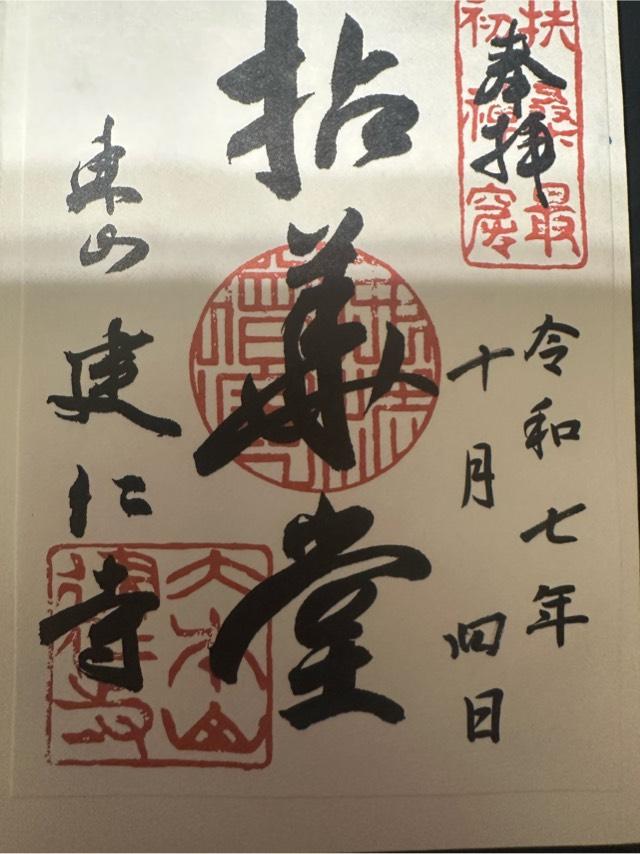 奉拝
扶桑最
初禅窟
令和七年
十月四日
拈華堂
東山
建仁寺
大本山
建仁寺